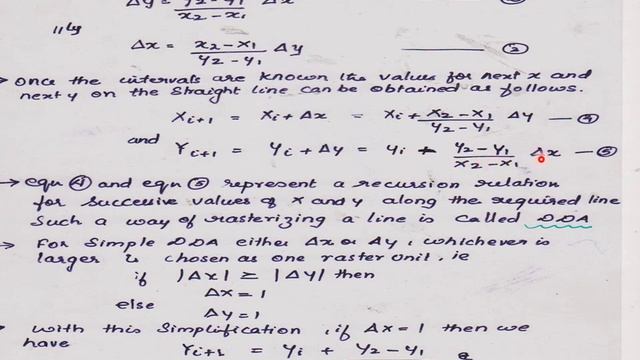 Δy = y2-y1/x2-x1 Δx
|||ly
Δx = x2-x1/y2-y1 Δy —— ③
→ Once the intervals are known the values for next x and
next y on the straight line can be obtained as follows.
Xi+1 = Xi+Δx = Xi+ x2-x1/y2-y1 Δy —④
and
Yi+1 = yi+Δy = yi + y2-y1/x2-x1 Δx —⑤
→ eqn ④ and eqn ⑤ represent a recursion relation
for successive values of x and y along the required line
Such a way of rasterizing a line is called DDA
→ For Simple DDA either Δx or Δy, whichever is
larger is chosen as one raster unit, ie
if |Δx| ≥ |Δy| then
Δx = 1
else
Δy = 1
→ with this simplification, if Δx=1 then we
have Yi+1 = yi + y2-y1